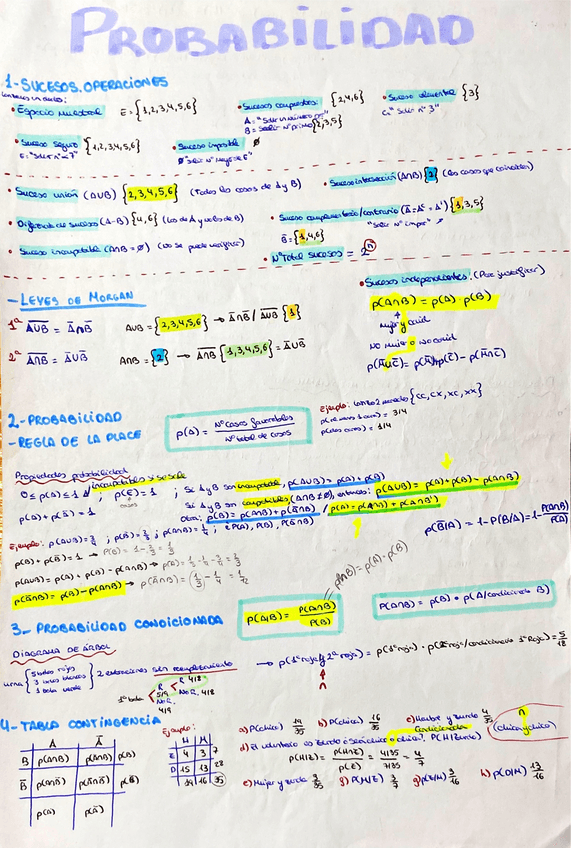 PROBABILIDAD
1-SUCESOS. OPERACIONES
• Espacio Muestral E = {1,2,3,4,5,6}
• Sucesos compuestos: {2,4,6}
A = "Salir un número par"
B = "Salir nº primo" {2,3,5}
• Suceso elemental {3}
C = "Salir nº 3"
• Suceso seguro {1,2,3,4,5,6}
• Suceso imposible ∅
• Suceso unión (A∪B) {2,3,4,5,6} (Todos los casos de A y B)
• Suceso intersección (A∩B) {2} (los casos que coinciden)
• Diferencia de sucesos (A-B) {4,6} (Los de A y no los de B)
• Suceso complementario/contrario (Ā = Aᶜ = A') {1,3,5}
"Salir nº impar"
B̄ = {1,4,6}
• Suceso incompatible (A∩B = ∅) (No se puede verificar)
• Nº Total sucesos = 2ⁿ
- LEYES DE MORGAN
1ª A̅∪̅B̅ = Ā∩B̄ A∪B = {2,3,4,5,6} → Ā∩B̄ / A̅∪̅B̅ {1}
2ª A̅∩̅B̅ = Ā∪B̄ A∩B = {2} → A̅∩̅B̅ {1,3,4,5,6} = Ā∪B̄
• Sucesos independientes. (Para justificar)
p(A∩B) = p(A) · p(B)
Mujer y covid
No mujer o no covid
p(M̄∪C̄) = p(M̄)+p(C̄) - p(M̄∩C̄)
2.-PROBABILIDAD
- REGLA DE LA PLACE
p(A) = Nº casos favorables / Nº total de casos
Ejemplo: lanzo 2 monedas {CC, CX, XC, XX}
p(al menos 1 cara) = 3/4
p(dos caras) = 1/4
Propiedades probabilidad
0 ≤ p(A) ≤ 1 ; p(E) = 1 ; Si A y B son incompatibles, p(A∪B) = p(A) + p(B)
p(A) + p(Ā) = 1 ; Si A y B son compatibles (A∩B ≠ ∅), entonces: p(A∪B) = p(A) + p(B) - p(A∩B)
Otra: p(B) = p(A∩B) + p(Ā∩B) / p(A) = p(A∩B) + p(A∩B̄)
p(B̄/A) = 1 - P(B/A) = 1 - p(A∩B)/p(A)
Ejemplo: p(A∪B) = 3/4 ; p(B̄) = 2/3 ; p(A∩B) = 1/4 ; ¿P(A), P(B), P(Ā∩B)
p(B) + p(B̄) = 1 → P(B) = 1 - 2/3 = 1/3
p(A∪B) = p(A) + p(B) - p(A∩B) →
p(Ā∩B) = p(B) - p(A∩B) → p(Ā∩B) = (1/3 - 1/4 = 1/12
3- PROBABILIDAD CONDICIONADA
p(A/B) = p(A∩B) / p(B)
P(A∩B) = p(B) • p(A/condicionada B)
DIAGRAMA DE ÁRBOL
urna { 5 bolas rojas
3 bolas blancas
1 bola verde } 2 extracciones sin reemplazamiento
→ p(1ª roja y 2ª roja) = p(1ª roja) · p(2ª roja/condicionada 1ª Roja) = 5/18
∩
1ª bola R 5/9 R 4/8 No R. 4/8
No R. 4/9
4-TABLA CONTINGENCIA
A Ā
B p(A∩B) p(Ā∩B) p(B)
B̄ p(A∩B̄) p(Ā∩B̄) p(B̄)
p(A) p(Ā)
Ejemplo:
H M
Z 4 3 7
D 15 13 28
16 35
a) P(Chico) 19/35 b) P(chica) 16/35 c) Hombre y zurdo 4/35
condicionada
P(H/Z) = p(H∩Z) / p(Z) = 4/35 / 7/35 = 4/7
e) Mujer y zurda 3/35 g) P(M/Z) 3/7 g) p(Z/M) 3/16 h) P(D/M) 13/16